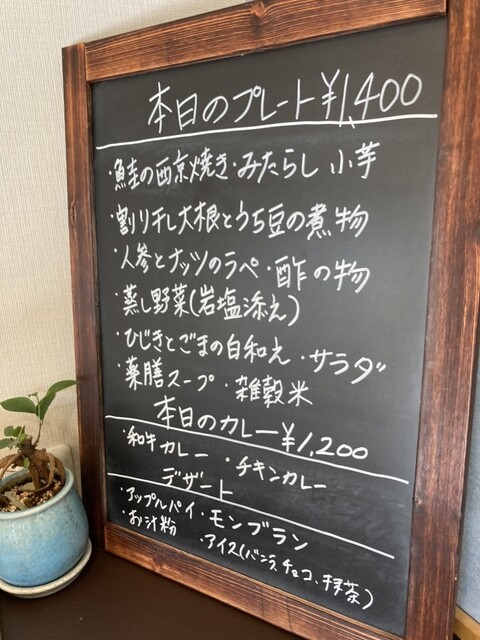 本日のプレート ¥1,400
・鮭の西京焼き・みたらし小芋
・割り干し大根とうち豆の煮物
・人参とナッツのラペ・酢の物
・蒸し野菜(岩塩添え)
・ひじきとごまの白和え・サラダ
・薬膳スープ・雑穀米
本日のカレー ¥1,200
・和牛カレー・チキンカレー
デザート
・アップルパイ・モンブラン
・お汁粉・アイス(バニラ、チョコ、抹茶)